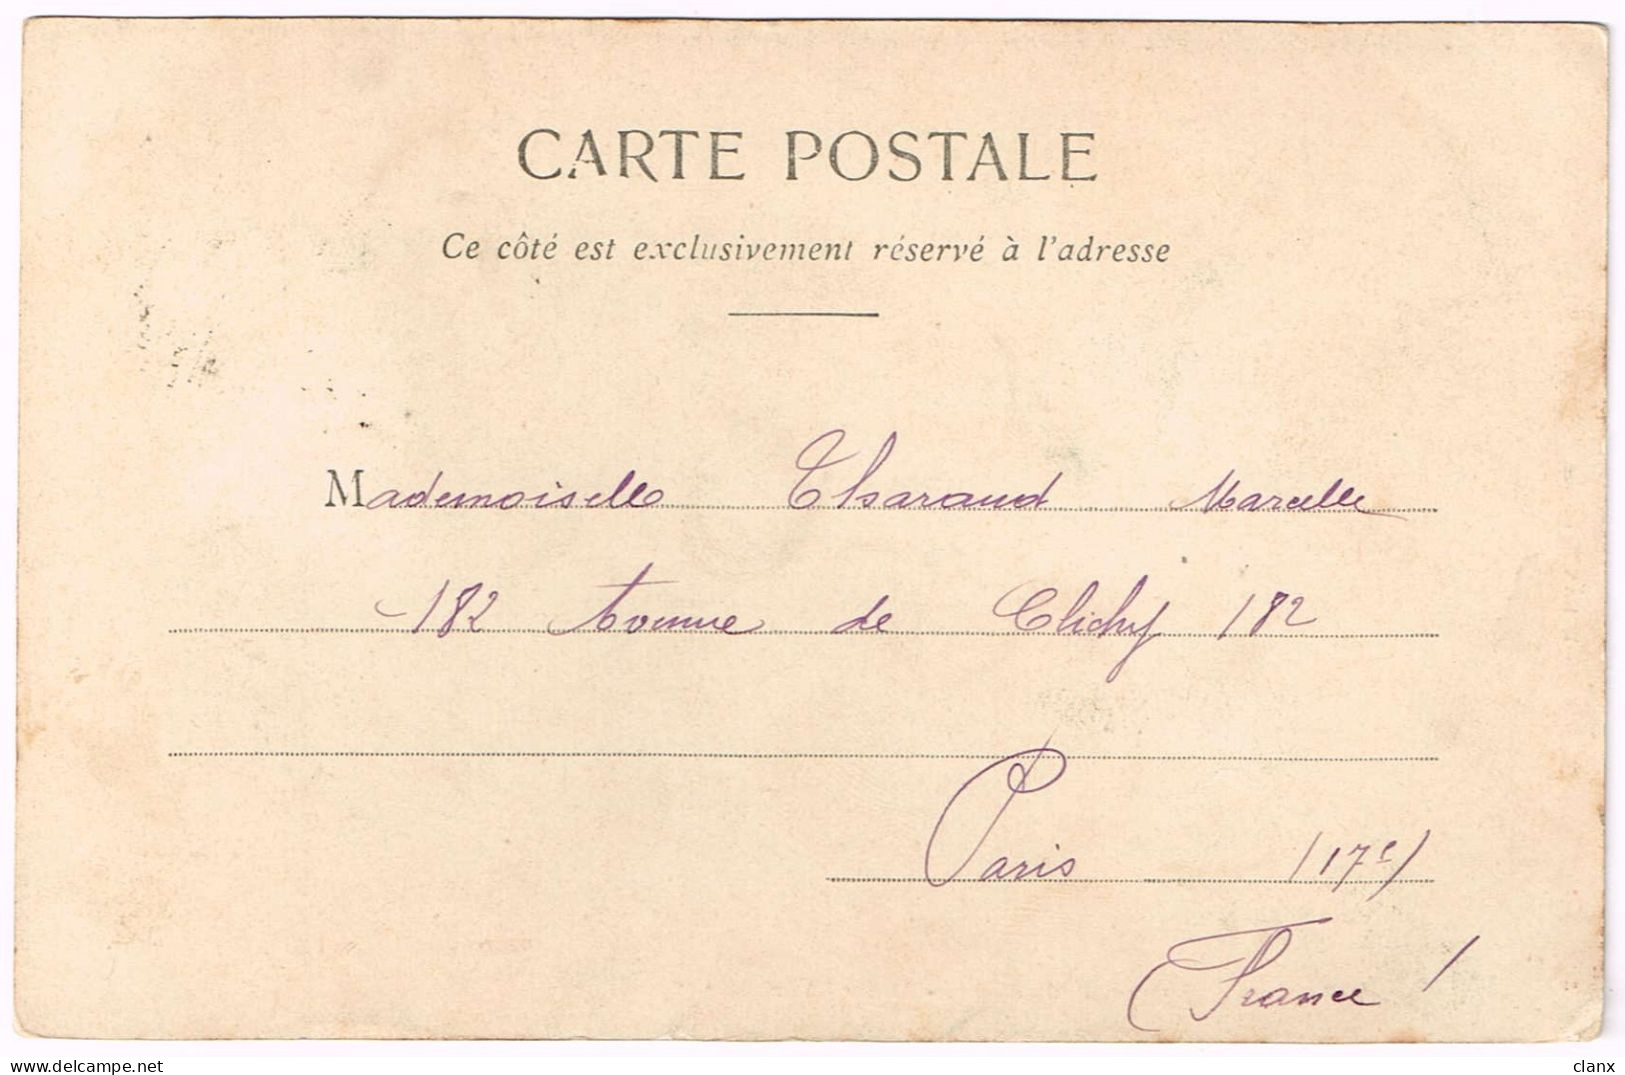 CARTE POSTALE
Ce côté est exclusivement réservé à l'adresse
Mademoiselle Tharaud Marcelle
182 Avenue de Clichy 182
Paris (17e)
France
delcampe.net
clanx